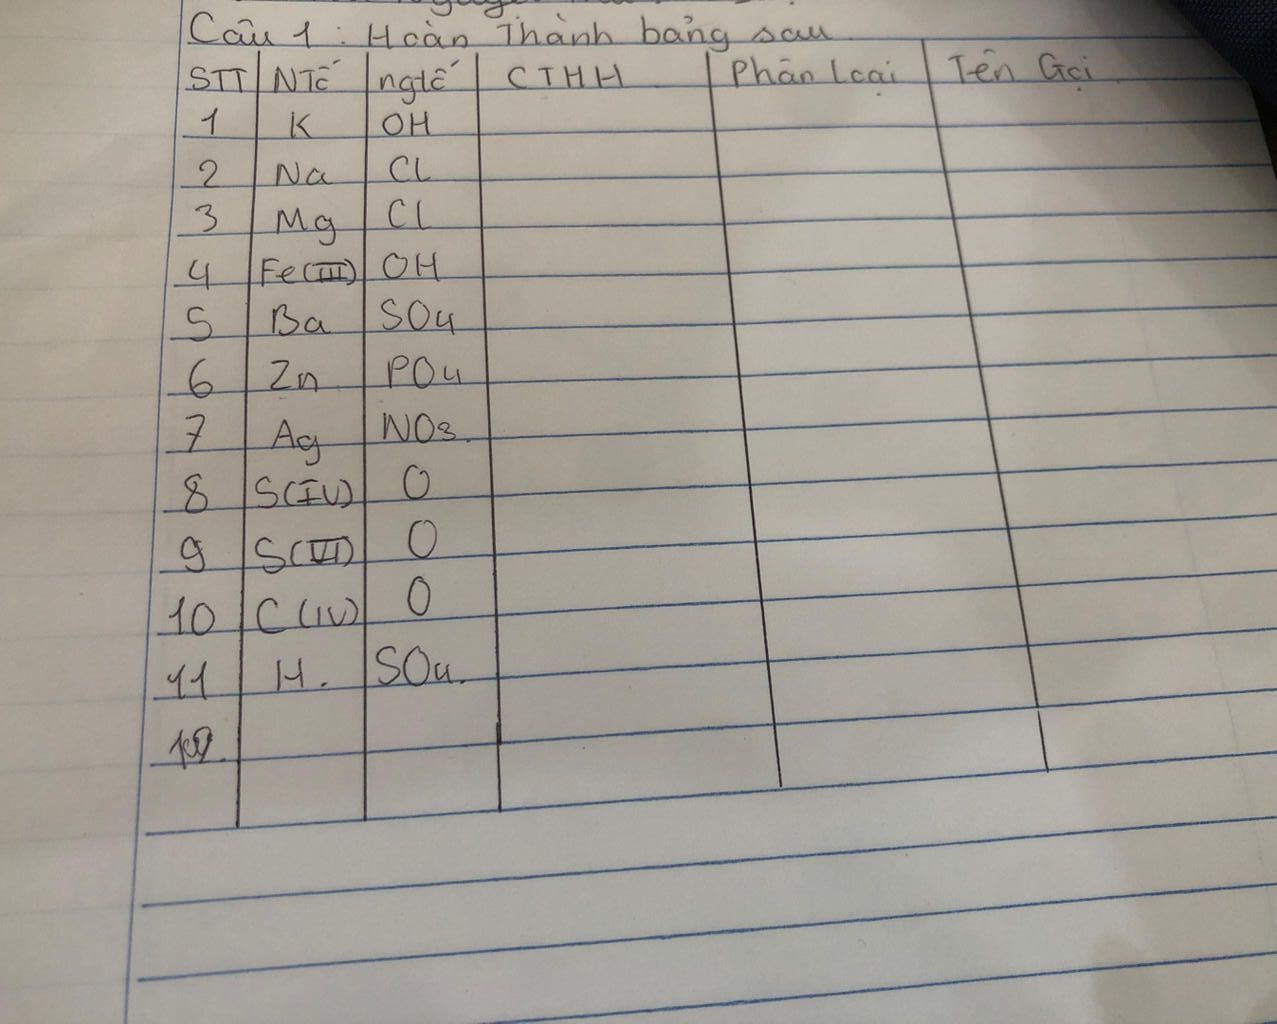 Câu 1 : Hoàn Thành bảng sau
STT NTố ngtố CTHH Phân Loại Tên Gọi
1 K OH
2 Na Cl
3 Mg Cl
4 Fe(III) OH
5 Ba SO4
6 Zn PO4
7 Ag NO3.
8 S(IV) O
9 S(VI) O
10 C(IV) O
11 H. SO4.